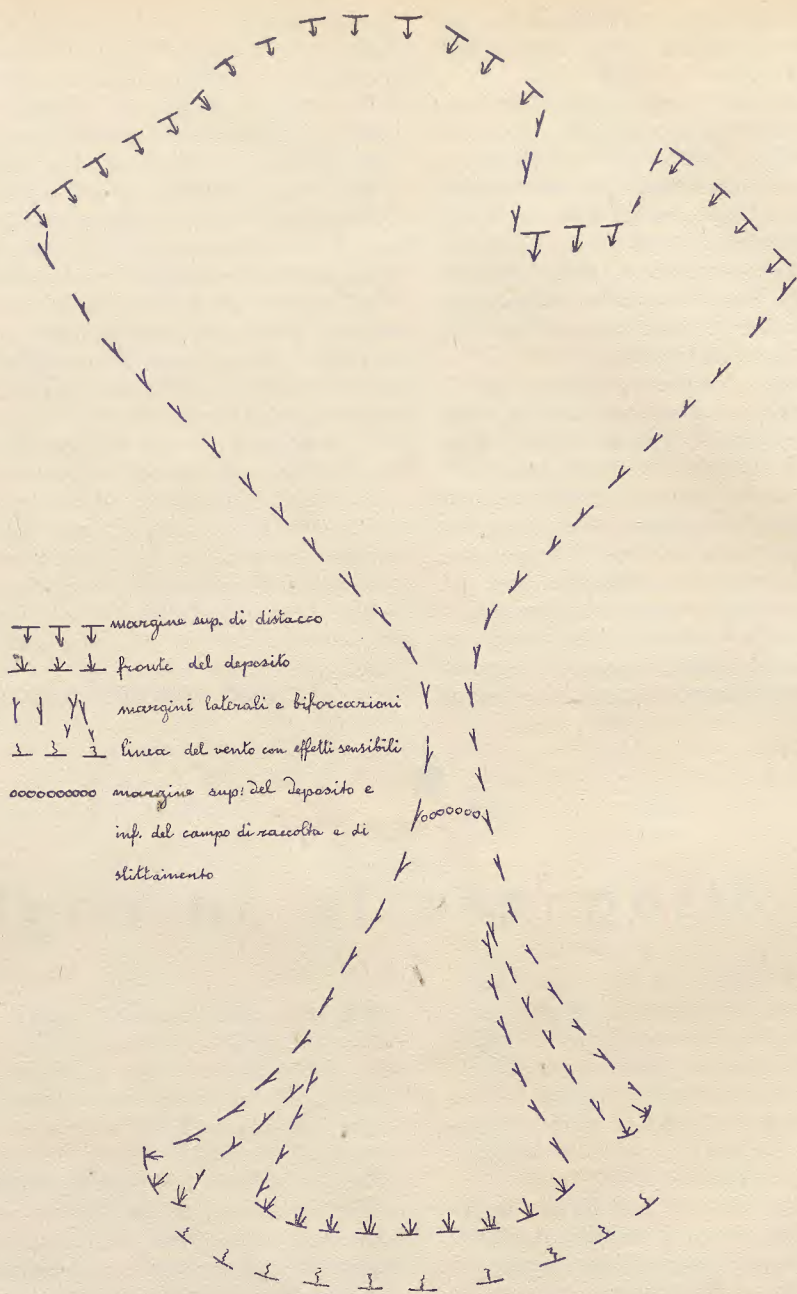 margine sup. di distacco
fronte del deposito
margini laterali e biforcazioni
linea del vento con effetti sensibili
margine sup. del deposito e
inf. del campo di raccolta e di
slittamento